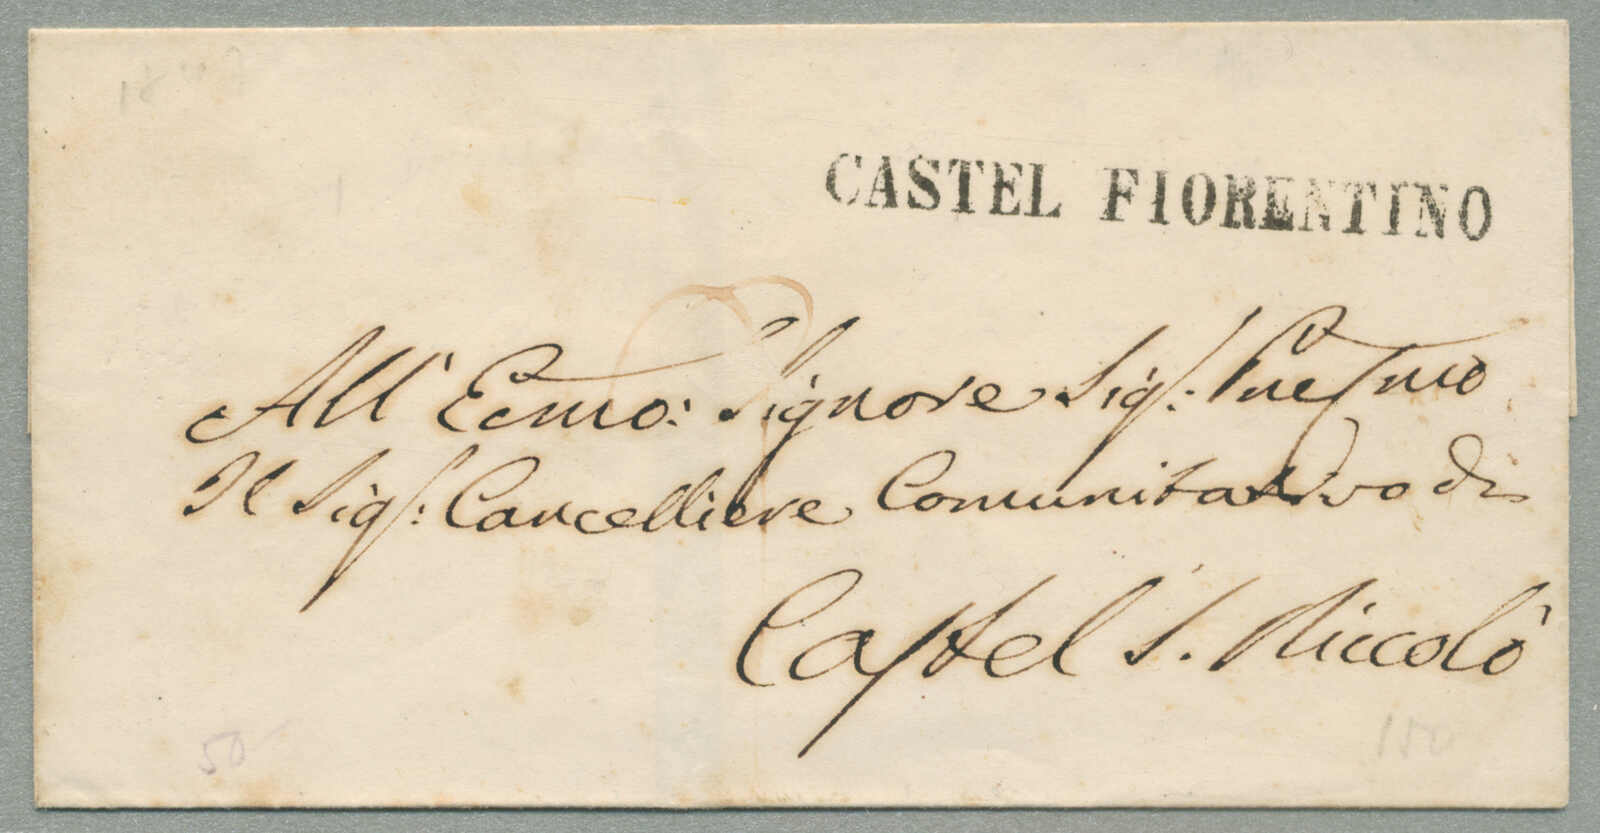 CASTEL FIORENTINO
All' Ecmo: Signore Sig:
Il Sig: Cancelliere Comunitativo di
Castel S. Niccolò
50
150